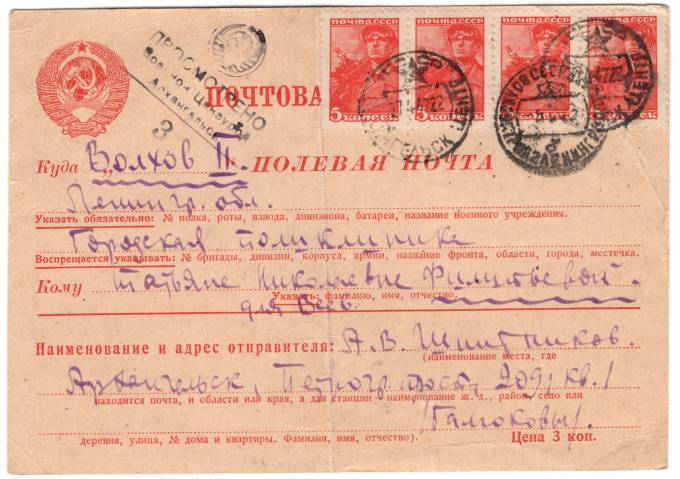 ПОЧТА СССР ПОЧТА СССР ПОЧТА СССР ПОЧТА СССР
5 копеек 5 копеек 5 копеек 5 копеек
ПРОСМОТРЕНО
Военной Цензурой
Архангельск
3
ПОЧТОВА
Куда Волхов II.
ПОЛЕВАЯ ПОЧТА
Ленингр. обл.
Указать обязательно: № полка, роты, взвода, дивизиона, батареи, название военного учреждения.
Городская поликлинике
Воспрещается указывать: № бригады, дивизии, корпуса, армии, название фронта, области, города, местечка.
Кому Татьяне Николаевне
Указать: фамилию, имя, отчество.
для
Наименование и адрес отправителя: А.В. Шпитников.
(наименование места, где
Архангельск, 209, кв. 1
находится почта, и области или края, а для станции — наименование ж. д., район, село или
деревня, улица, № дома и квартиры. Фамилия, имя, отчество).
Цена 3 коп.